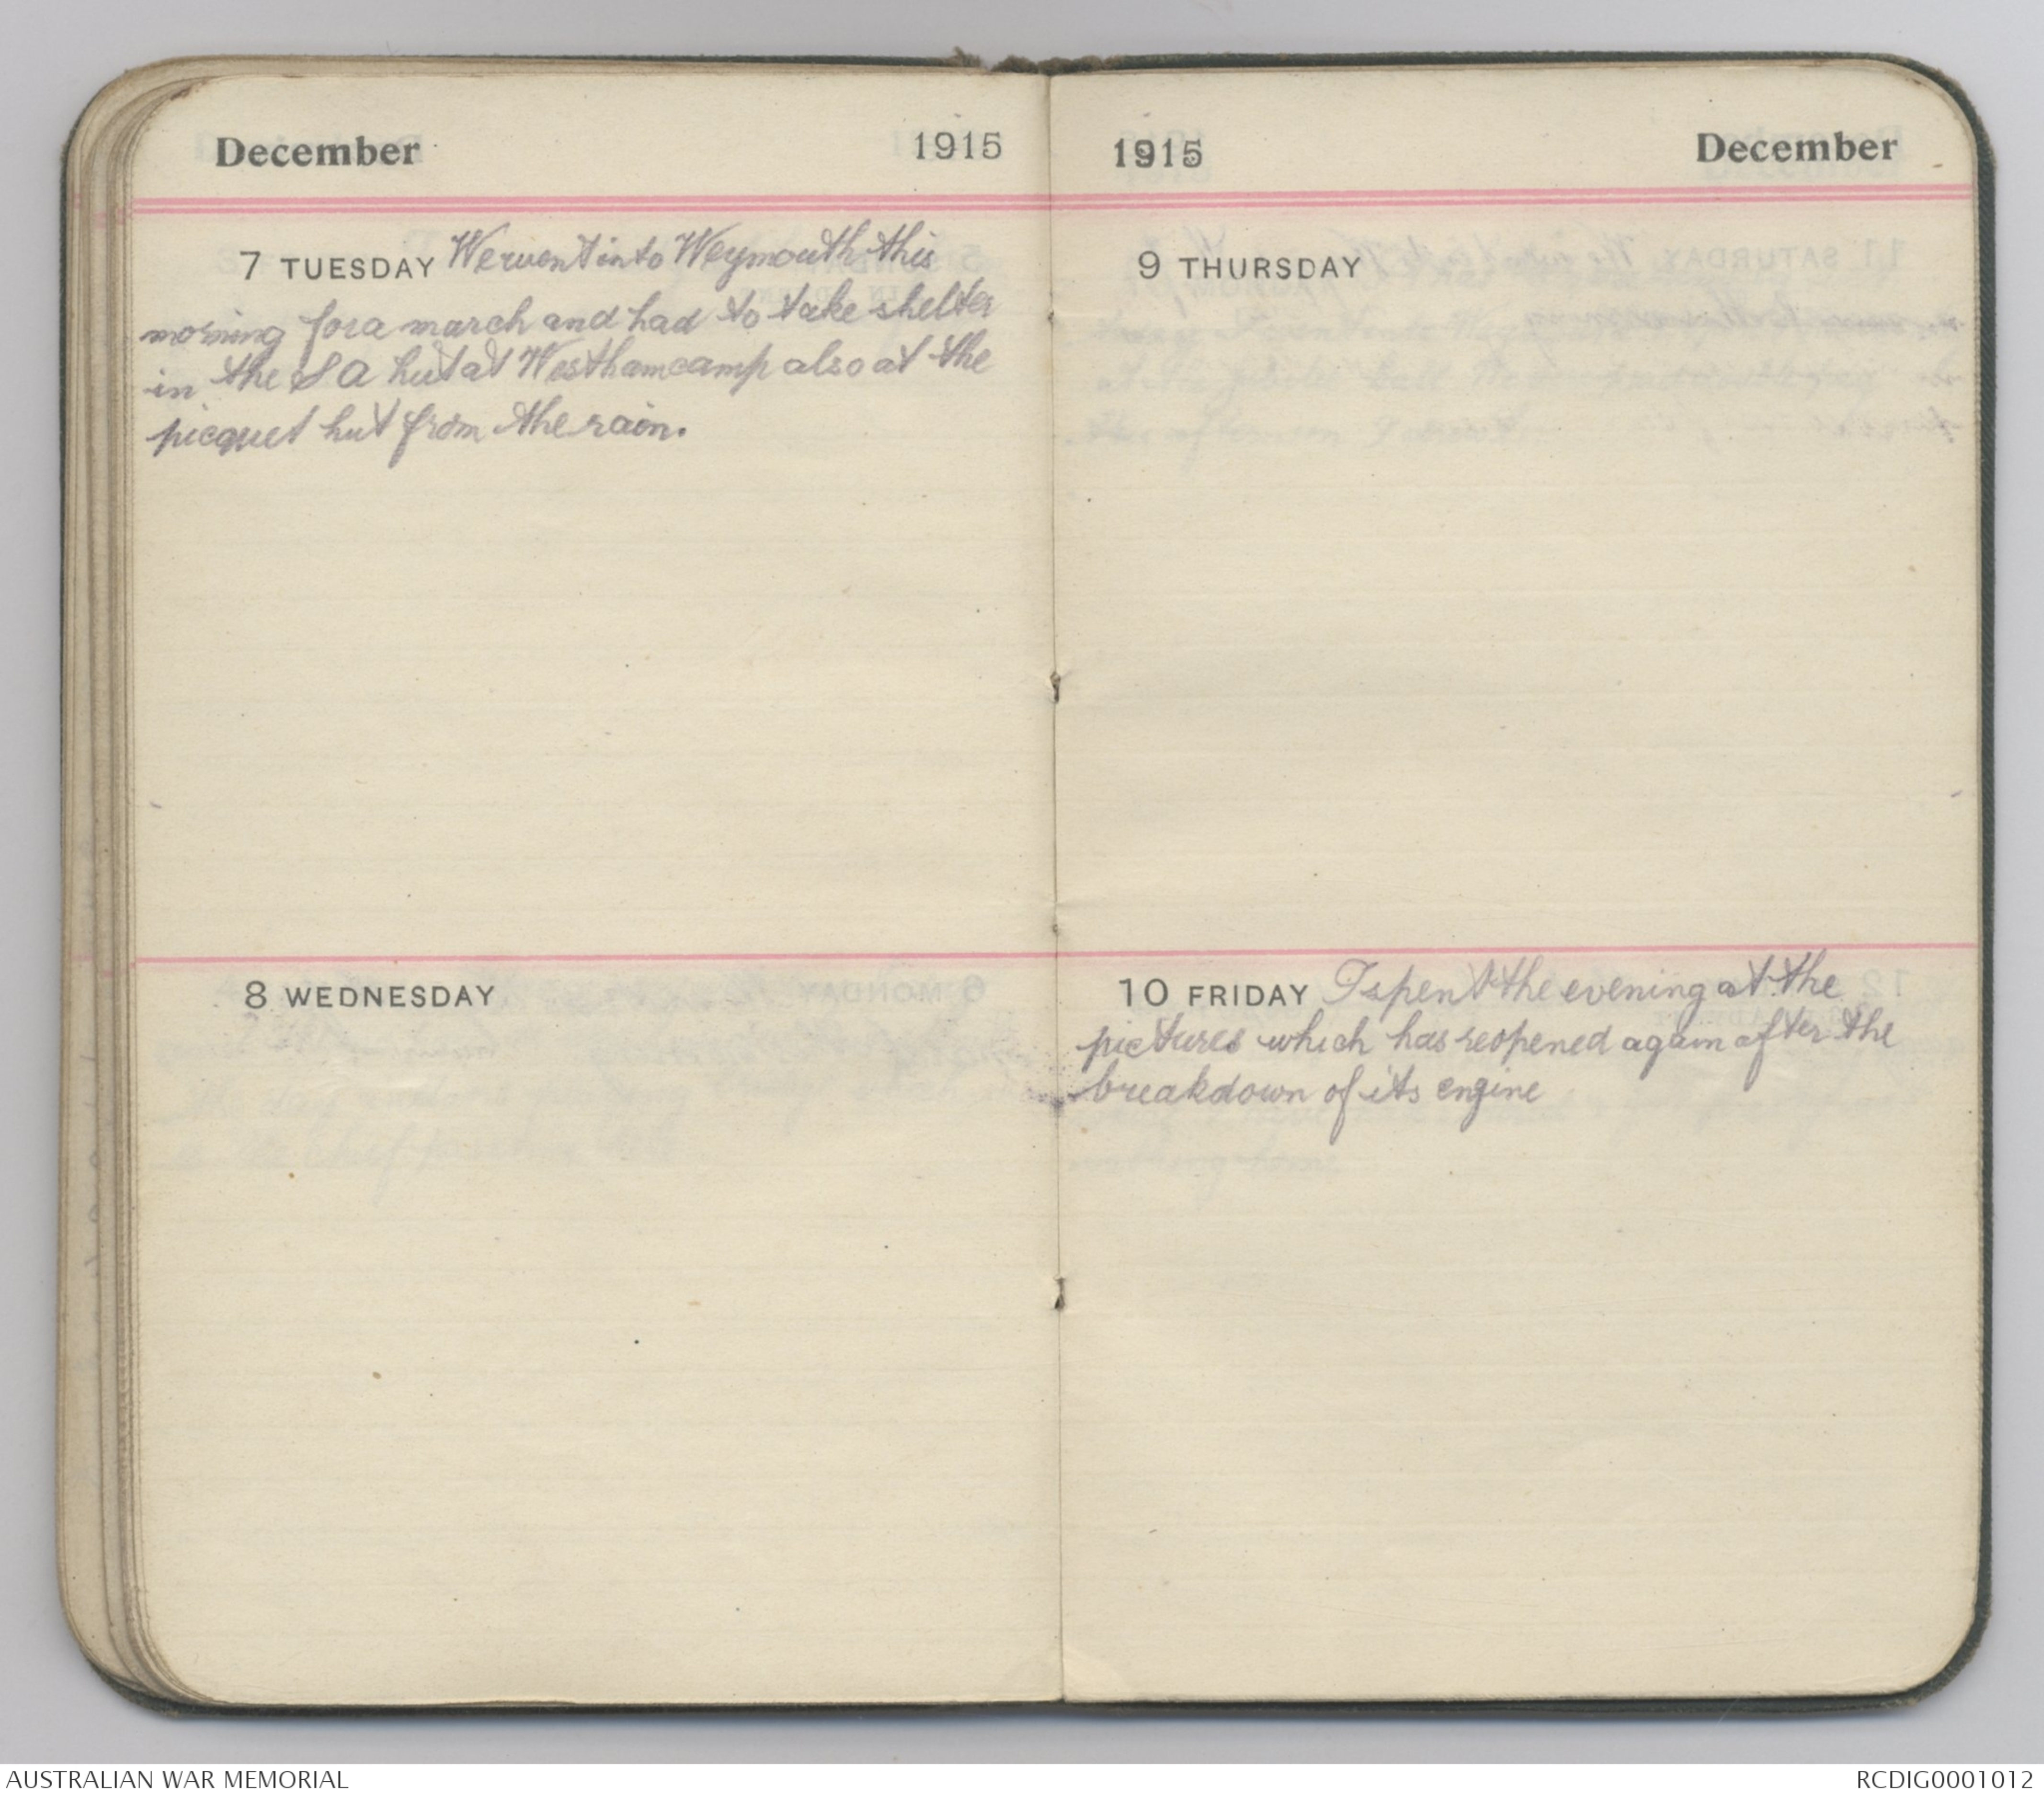 December 1915
7 TUESDAY We went into Weymouth this
morning for a march and had to take shelter
in the S A hut at Westham camp also at the
picquet hut from the rain.
8 WEDNESDAY
1915 December
9 THURSDAY
10 FRIDAY I spent the evening at the
pictures which has reopened again after the
breakdown of its engine
AUSTRALIAN WAR MEMORIAL
RCDIG0001012